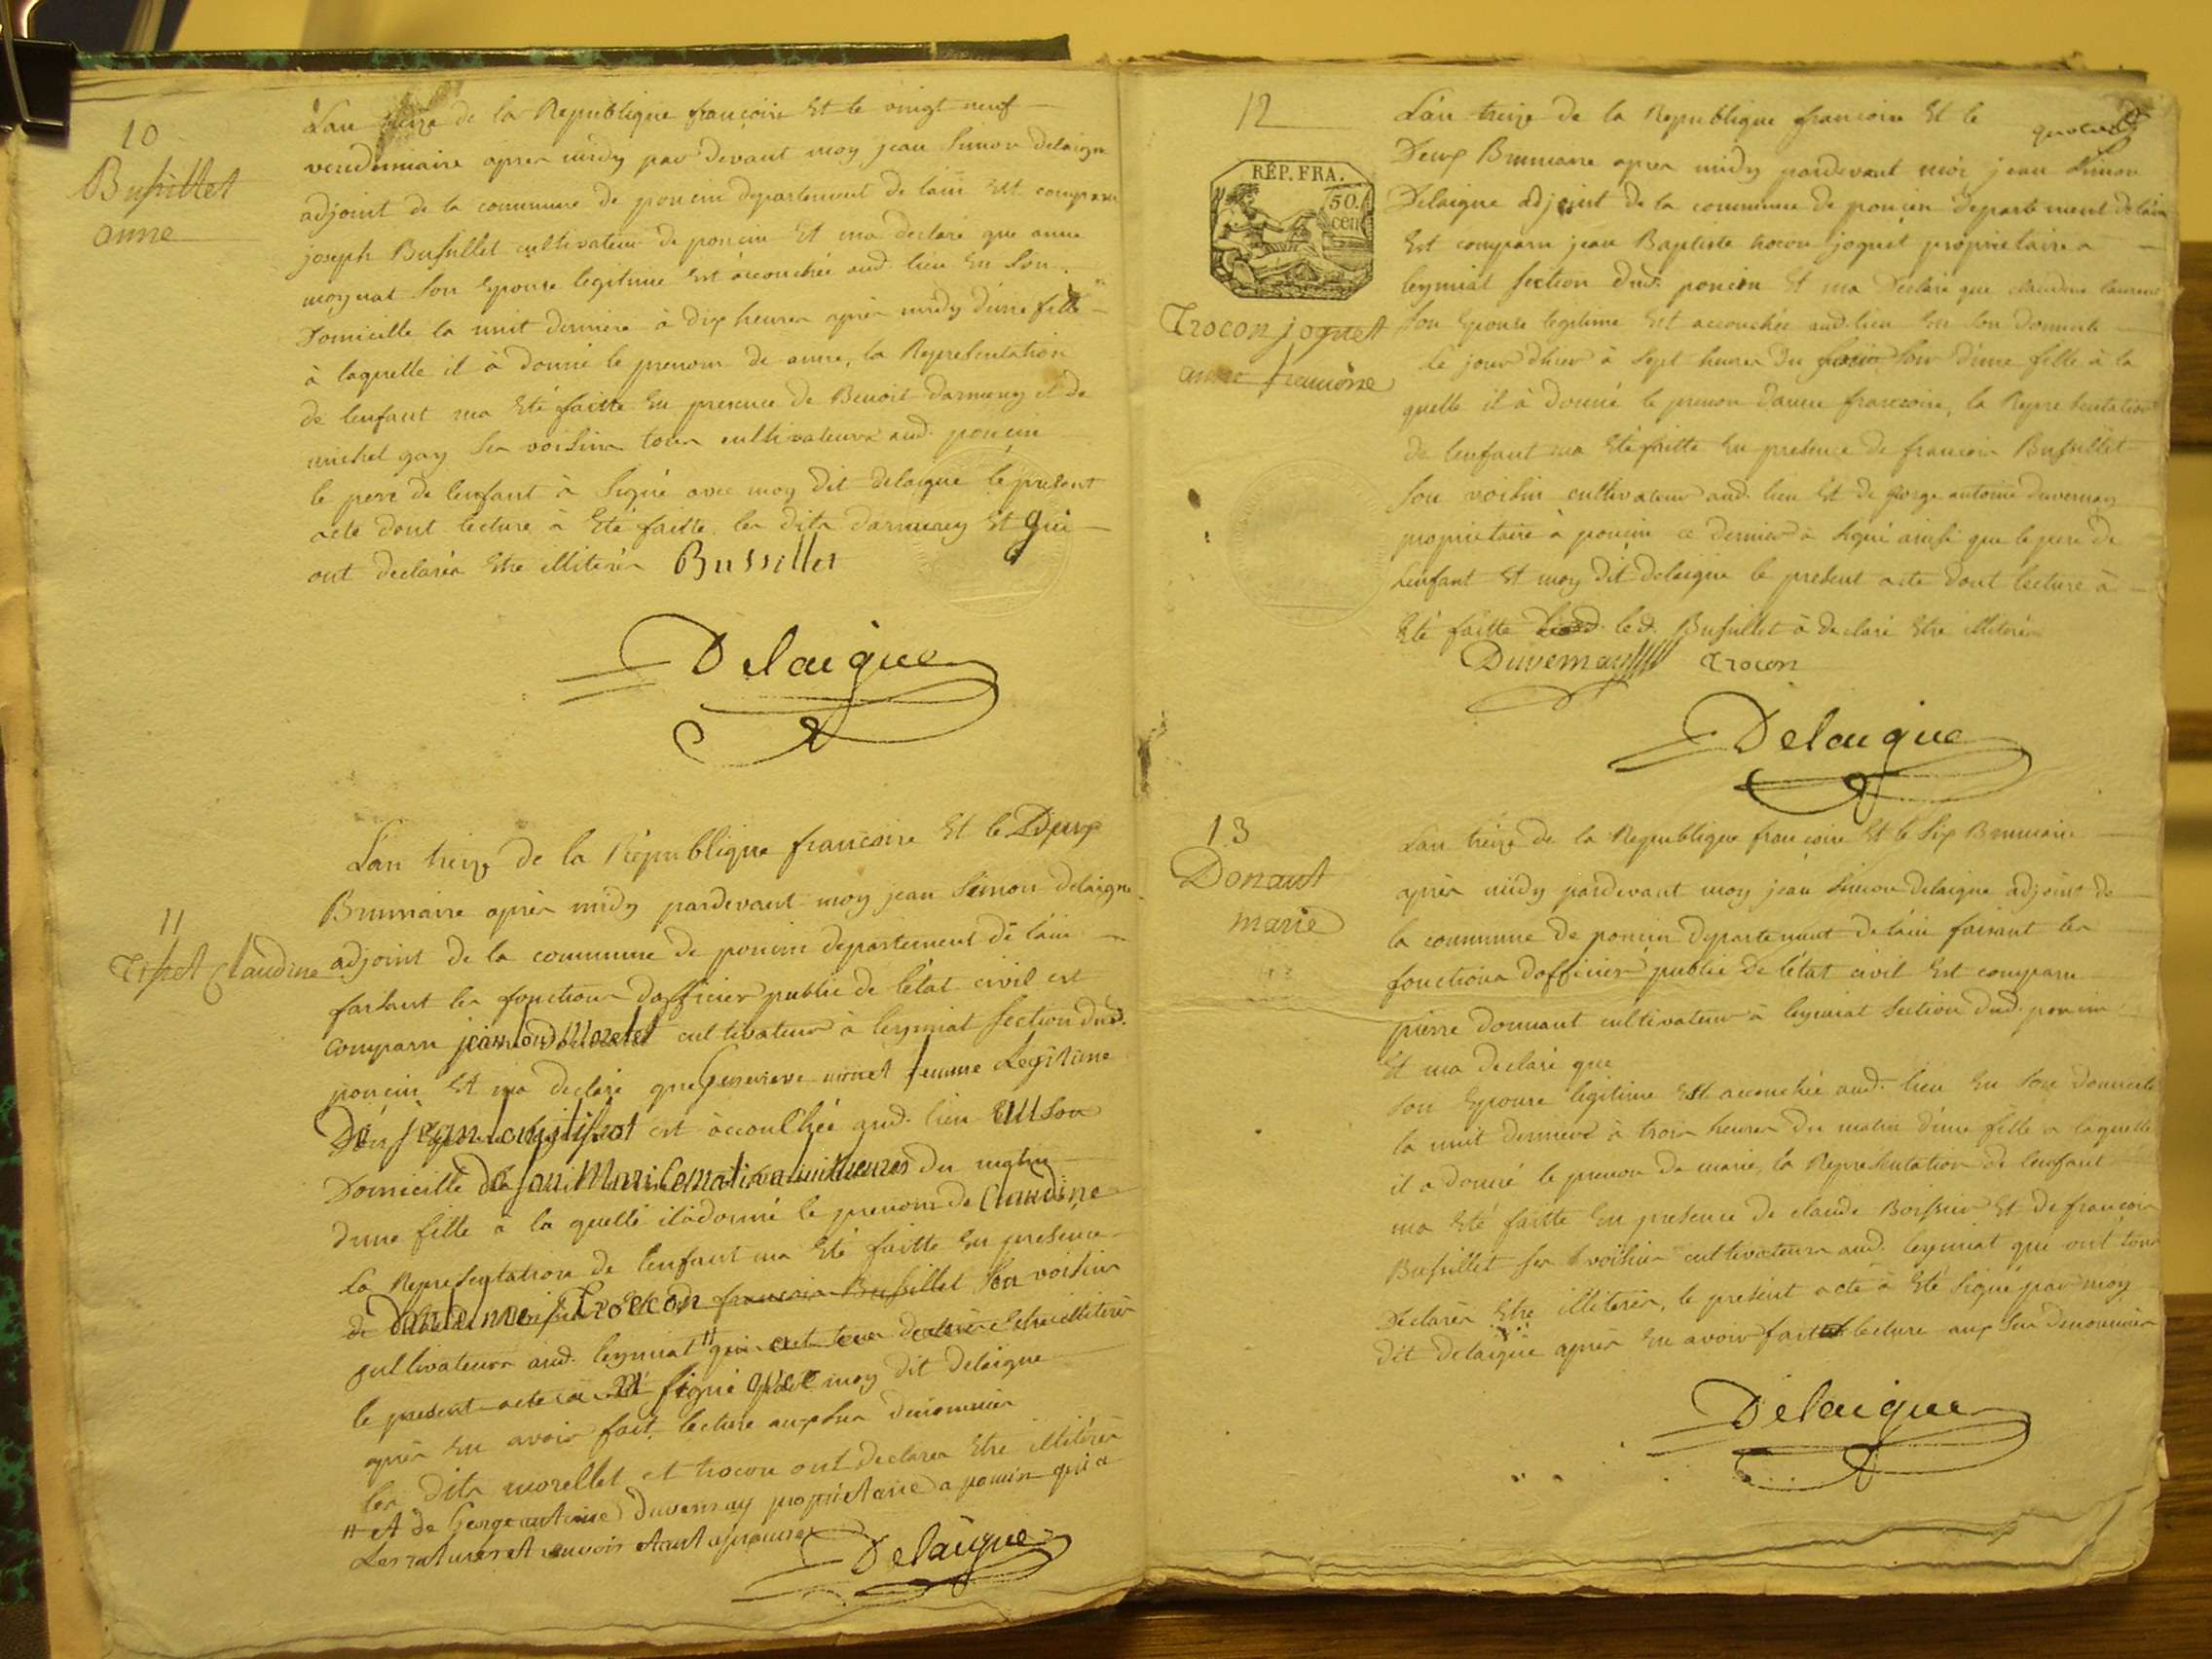 10
Bussillet
anne
L'an treize de la Republique françoise Et le vingt neuf
vendemiaire apres midy par devant moy jean Simon delaigue
adjoint de la commune de poncin departement de l'ain Est comparu
joseph Bussillet cultivateur de poncin Et ma declaré que anne
moynat Son Epouse legitime Est accouchée aud. lieu En Son
Domicille la nuit derniere à dix heures après midy d'une fille
à laquelle il à donné le prenom de anne, la Representation
de lenfant ma Eté faitte En presence de Benoit darmeray et de
michel gay Ses voisins tous cultivateurs aud. poncin
le pere de lenfant à Signé avec moy dit delaigue le présent
acte dont lecture à Eté faitte. les dits darmeray Et gui
ont declarés Etre illiterés Bussillet
Delaigue
11
Tissot Claudine
L'an treize de la Republique françoise Et le Deux
Brumaire après midy pardevant moy jean Simon delaigue
adjoint de la commune de poncin departement de l'ain
faisant les fonctions dofficier public de létat civil est
comparu morelet cultivateur à leymiat Section dud.
poncin Et ma declaré que Genevieve monet femme Legitime
De jean tissot est accouchée aud. lieu En Son
Domicille de Son Mari Ce matin a huit heures du matin
dune fille a la quelle il à donné le prenom de Claudine
La Representation de lenfant ma Eté faitte En presence
de Trocon francois Bussillet Son voisin
cultivateurs aud. leymiat " qui ont tous declarés Etre illiterés
le present acte à été signé avec moy dit delaigue
après En avoir fait lecture aux Sus denommés
les dits morellet et trocon ont declarés Etre illiterés
" et de George antoine Duvernay propriétaire a poncin qui a
Les ratures et renvois etant approuvés
Delaigue
12
RÉP. FRA.
50.
cen
Trocon joguet
anne françoise
L'an treize de la Republique françoise Et le
Deux Brumaire apres midy pardevant moi jean Simon
Delaigue adjoint de la commune de poncin departement de l'ain
Est comparu jean Baptiste trocon joguet propriétaire a
leymiat Section dud. poncin Et ma Declaré que claudine laurent
Son Epouse legitime Est accouchée aud. lieu En Son Domicile
le jour dhier à Sept heures du Soir d'une fille à la
quelle il à donné le prenom danne francoise, la Representation
de lenfant ma Eté faitte En presence de francois Bussillet
Son voisin cultivateur aud. lieu Et de george antoine duvernay
propriétaire à poncin ce dernier à Signé ainsi que le pere de
Lenfant Et moy dit delaigue le présent acte dont lecture à
Eté faitte led. Bussillet à declaré Etre illiteré
Duvernay Trocon
Delaigue
13
Donant
marie
L'an treize de la Republique françoise Et le Six Brumaire
après midy pardevant moy jean Simon delaigue adjoint de
la commune de poncin departement de l'ain faisant les
fonctions dofficier public de l'état civil Est comparu
pierre donnant cultivateur à leymiat Section dud. poncin
Et ma declaré que
Son Epouse legitime Est accouchée aud. lieu En Son domicile
la nuit derniere à trois heures du matin d'une fille a laquelle
il a donné le prenom de marie, la Representation de lenfant
ma Eté faitte En presence de claude Boissieu Et de françois
Bussillet Ses voisins cultivateurs aud. leymiat qui ont tous
Declarés Etre illiterés, le présent acte à Eté Signé par moy
dit delaigue après En avoir fait lecture aux Sus denommés
Delaigue